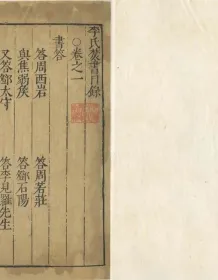 李氏焚書目錄
○卷之一
書答
答周西岩
答周若莊
與焦弱侯
答鄧石陽
又答鄧太守
答李見羅先生